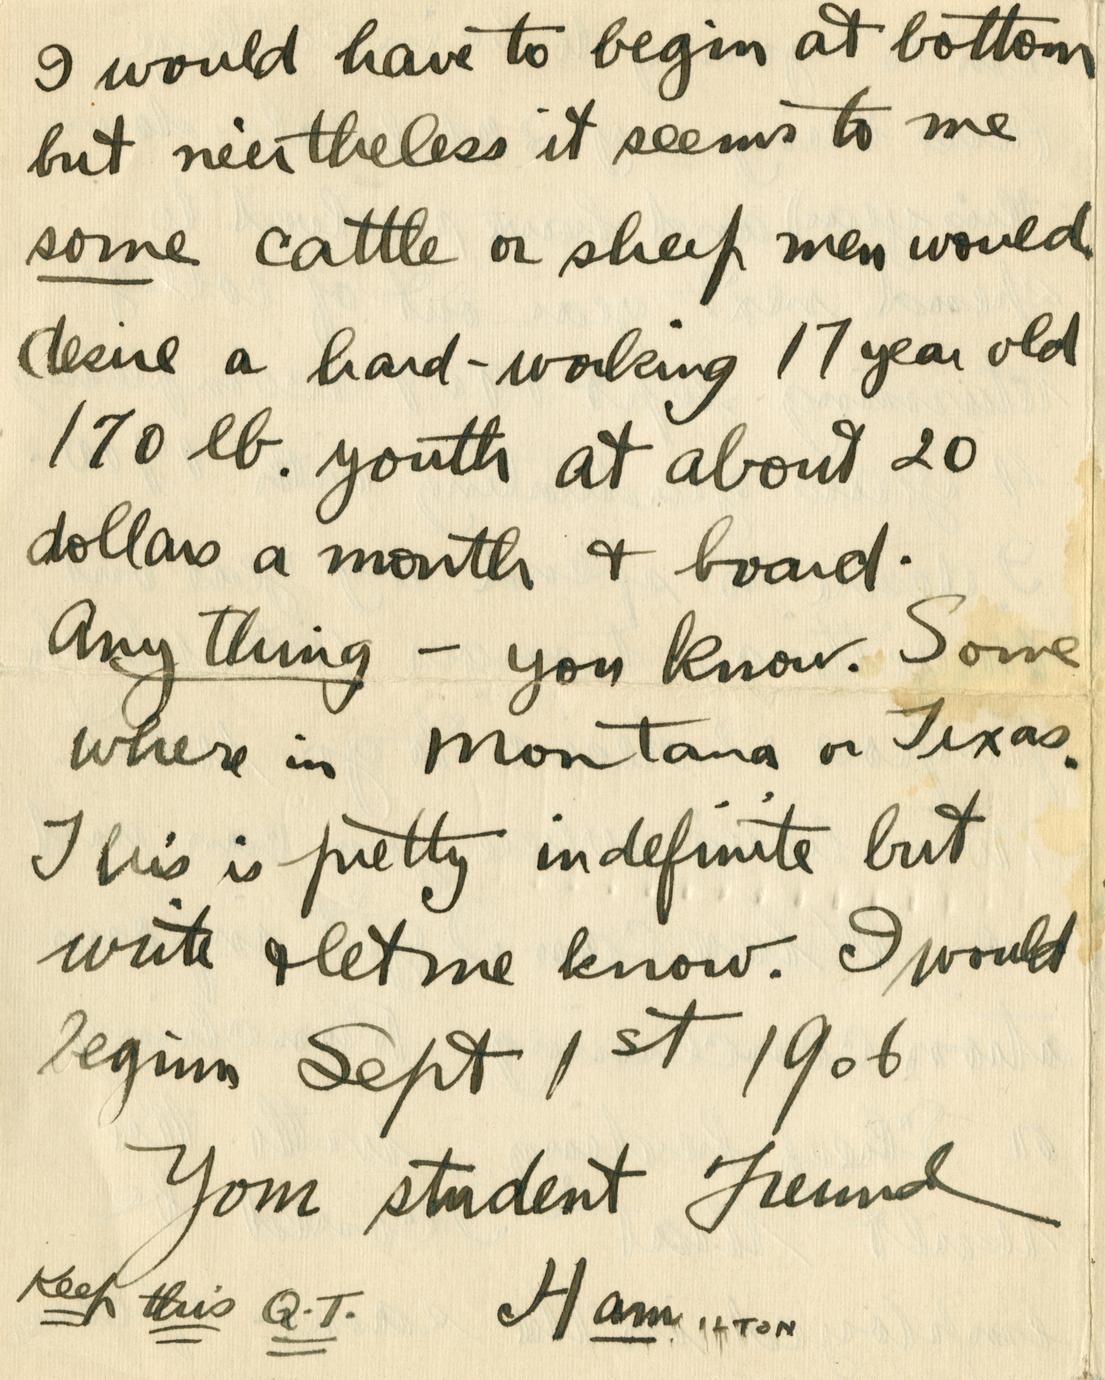 I would have to begin at bottom
but nevertheless it seems to me
some cattle or sheep men would
desire a hard-working 17 year old
170 lb. youth at about 20
dollars a month & board.
Any thing - you know. Some
where in Montana or Texas.
This is pretty indefinite but
write & let me know. I would
begin Sept 1st 1906
Your student Freund
Keep this Q.T. Hamilton